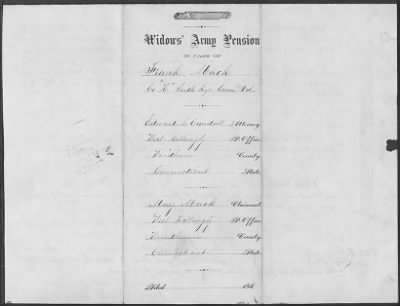 Widows' Army Pension
IN CASE OF
Frank Mack
Co "K" Regt Conn Vol.
Edward L Cundall Attorney
West Killingly P. Office
Windham County
Connecticut State
Mary Mack Claimant
West Killingly P. Office
Windham County
Connecticut State
Filed 186